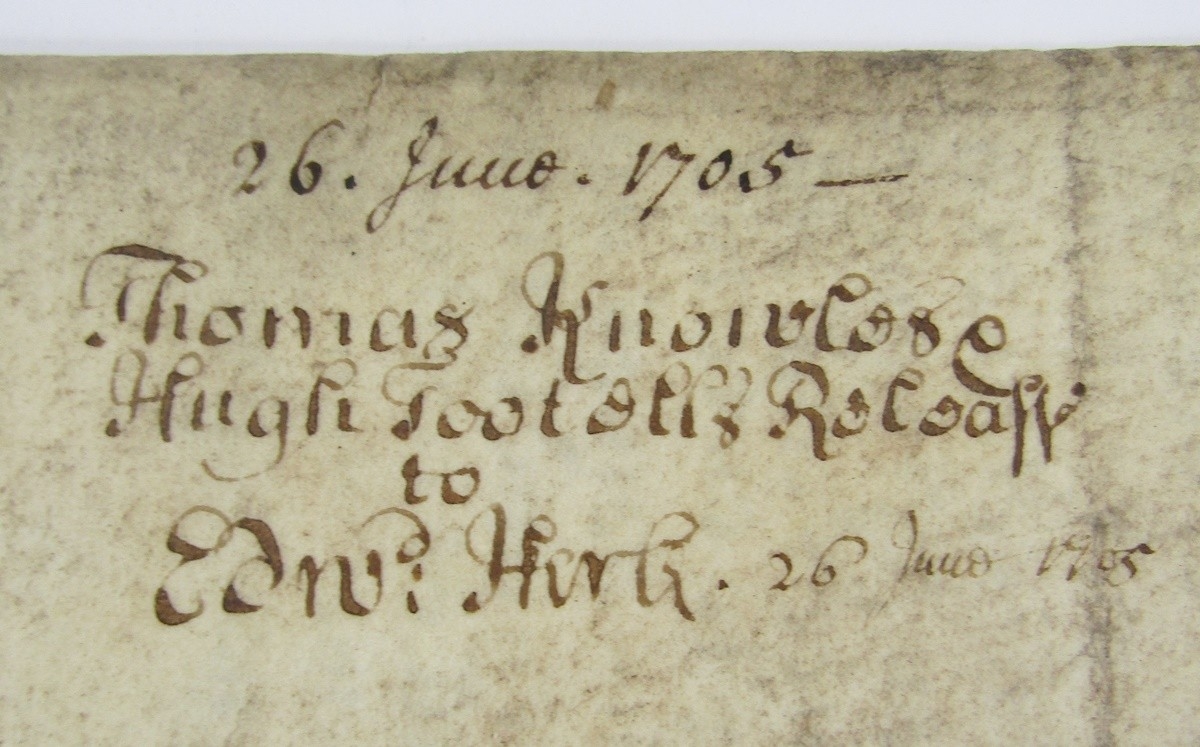 26. June. 1705 —
Thomas Knowles &
Hugh Tootells Release
to
Edwd: 26 June 1705